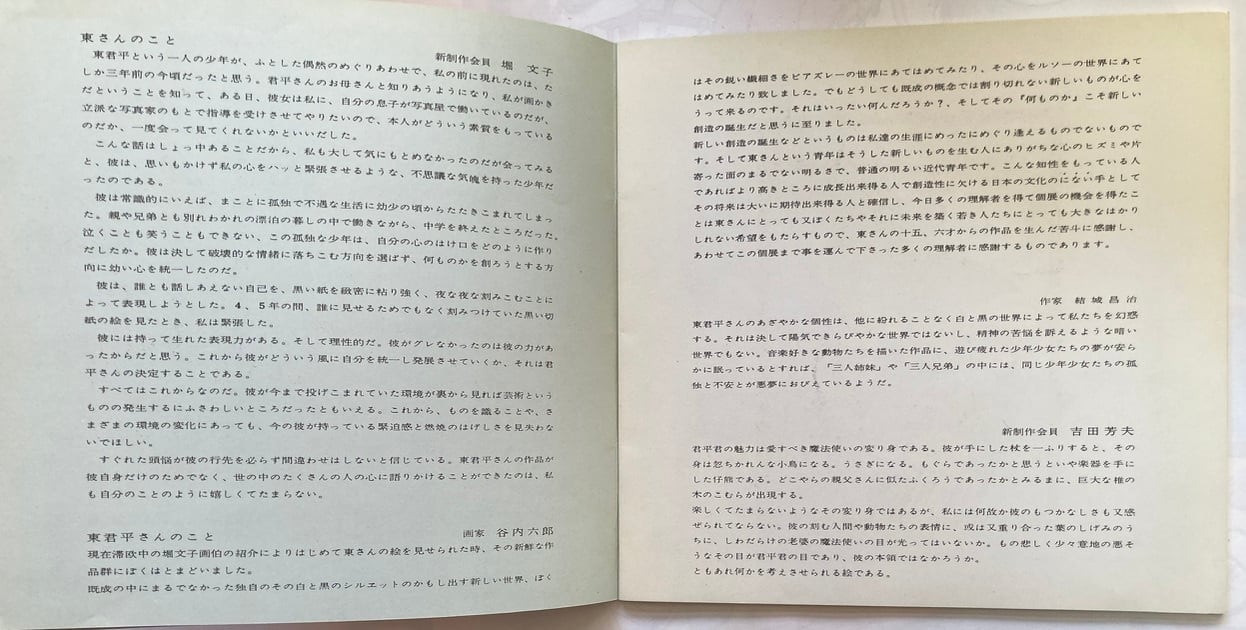 東さんのこと
新制作会員　堀　文子
東君平という一人の少年が、ふとした偶然のめぐりあわせで、私の前に現れたのは、た
しか三年前の今頃だったと思う。君平さんのお母さんと知りあうようになり、私が画かき
だということを知って、ある日、彼女は私に、自分の息子が写真屋で働いているのだが、
立派な写真家のもとで指導を受けさせてやりたいので、本人がどういう素質をもっている
のだか、一度会って見てくれないかといいだした。
こんな話はしょっ中あることだから、私も大して気にもとめなかったのだが会ってみる
と、彼は、思いもかけず私の心をハッと緊張させるような、不思議な気魄を持った少年だ
ったのである。
彼は常識的にいえば、まことに孤独で不遇な生活に幼少の頃からたたきこまれてしまっ
た。親や兄弟とも別れわかれの漂泊の暮しの中で働きながら、中学を終えたところだった。
泣くことも笑うこともできない、この孤独な少年は、自分の心のはけ口をどのように作り
だしたか。彼は決して破壊的な情緒に落ちこむ方向を選ばず、何ものかを創ろうとする方
向に幼い心を統一したのだ。
彼は、誰とも話しあえない自己を、黒い紙を緻密に粘り強く、夜な夜な刻みこむことに
よって表現しようとした。4、5年の間、誰に見せるためでもなく刻みつけていた黒い切
紙の絵を見たとき、私は緊張した。
彼には持って生れた表現力がある。そして理性的だ。彼がグレなかったのは彼の力があ
ったからだと思う。これから彼がどういう風に自分を統一し発展させていくか、それは君
平さんの決定することである。
すべてはこれからなのだ。彼が今まで投げこまれていた環境が裏から見れば芸術という
ものの発生するにふさわしいところだったともいえる。これから、ものを識ることや、さ
まざまの環境の変化にあっても、今の彼が持っている緊迫感と燃焼のはげしさを見失わな
いでほしい。
すぐれた頭悩が彼の行先を必らず間違わせはしないと信じている。東君平さんの作品が
彼自身だけのためでなく、世の中のたくさんの人の心に語りかけることができたのは、私
も自分のことのように嬉しくてたまらない。
東君平さんのこと
画家　谷内六郎
現在滞欧中の堀文子画伯の紹介によりはじめて東さんの絵を見せられた時、その新鮮な作
品群にぼくはとまどいました。
既成の中にまるでなかった独自のその白と黒のシルエットのかもし出す新しい世界、ぼく
はその鋭い繊細さをビアズレーの世界にあてはめてみたり、その心をルソーの世界にあて
はめてみたり致しました。でもどうしても既成の概念では割り切れない新しいものが心を
うって来るのです。それはいったい何んだろうか？、そしてその『何ものか』こそ新しい
創造の誕生だと思うに至りました。
新しい創造の誕生などというものは私達の生涯にめったにめぐり逢えるものでないもので
す。そして東さんという青年はそうした新しいものを生む人にありがちな心のヒズミや片
寄った面のまるでない明るさで、普通の明るい近代青年です。こんな知性をもっている人
であればより高きところに成長出来得る人で創造性に欠ける日本の文化のにない手として
その将来は大いに期待出来得る人と確信し、今日多くの理解者を得て個展の機会を得たこ
とは東さんにとっても又ぼくたちやそれに未来を築く若き人たちにとっても大きなはかり
しれない希望をもたらすもので、東さんの十五、六才からの作品を生んだ苦斗に感謝し、
あわせてこの個展まで事を運んで下さった多くの理解者に感謝するものであります。
作家　結城昌治
東君平さんのあざやかな個性は、他に紛れることなく白と黒の世界によって私たちを幻惑
する。それは決して陽気できらびやかな世界ではないし、精神の苦悩を訴えるような暗い
世界でもない。音楽好きな動物たちを描いた作品に、遊び疲れた少年少女たちの夢が安ら
かに眠っているとすれば、「三人姉妹」や「三人兄弟」の中には、同じ少年少女たちの孤
独と不安とが悪夢におびえているようだ。
新制作会員　吉田芳夫
君平君の魅力は愛すべき魔法使いの変り身である。彼が手にした杖を一ふりすると、その
身は忽ちかれんな小鳥になる。うさぎになる。もぐらであったかと思うといや楽器を手に
した仔熊である。どこやらの親父さんに似たふくろうであったかとみるまに、巨大な椎の
木のこむらが出現する。
楽しくてたまらないようなその変り身ではあるが、私には何故か彼のもつかなしさも又感
ぜられてならない。彼の刻む人間や動物たちの表情に、或は又重り合った葉のしげみのう
ちに、しわだらけの老婆の魔法使いの目が光ってはいないか。もの悲しく少々意地の悪そ
うなその目が君平君の目であり、彼の本領ではなかろうか。
ともあれ何かを考えさせられる絵である。